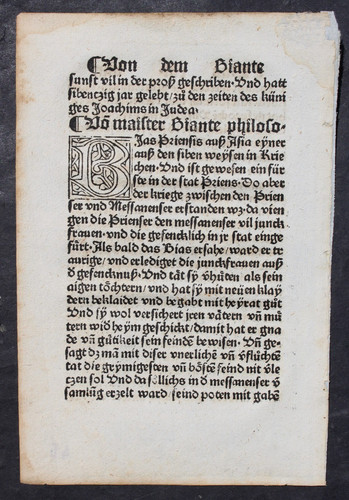 ¶Von dem Biante
sunst vil in der proß geschriben· Vnd hatt
sibentzig jar gelebt/zů den zeiten des küni
ges Joachims in Judea·
¶Vō maister Biante philoso·
BJas Priensis auß Asia eyner
auß den siben weysen in Krie
chen· Vnd ist gewesen ein für
ste in der stat Priens· Do aber
der kriege zwischen den Prien
ser vnd Messanenser erstanden wz·da vien
gen die Prienser den messanenser vil junck
frauen· vnd die gefencklich in jr stat einge
fürt· Als bald das Bias erfahe/ward er tr
aurige/vnd erlediget die junckfrauen auß
d̄ gefencknuß· Vnd tät sÿ v̄hüten als sein
aigen töchtern/vnd hat sÿ mit neüen klaÿ
dern beklaidet vnd begabt mit heÿrat gůt
Vnd sÿ wol versichert jren vätern vn̄ mů
tern wid̄ heÿm geschickt/damit hat er gna
de vn̄ gütikeit sein feinden bewisen· Vn̄ ge
sagt dz mā mit diser vnerlichē vn̄ v̄flüchtē
tat die grÿmigesten vn̄ bösten feind nit vle
tzen sol Vnd da söllichs in d̄ messanenser v̄
samlūg erzelt ward/seind poten mit gabē